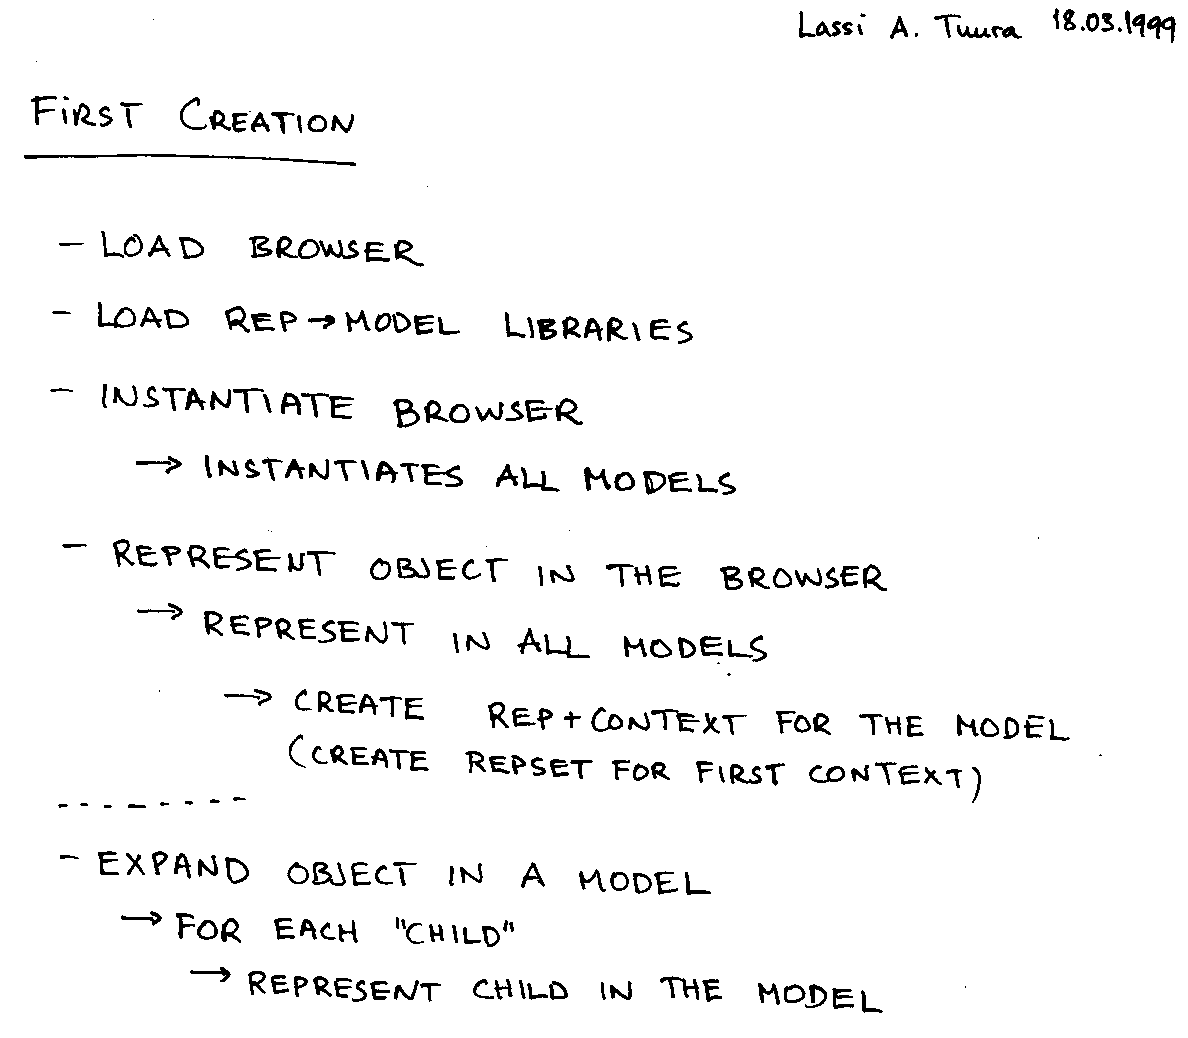 Lassi A. Tuura 18.03.1999
FiRST CREATION
- LOAD BROWSER
- LOAD REP→MODEL LIBRARIES
- INSTANTIATE BROWSER
→ INSTANTIATES ALL MODELS
- REPRESENT OBJECT IN THE BROWSER
→ REPRESENT IN ALL MODELS
→ CREATE REP+CONTEXT FOR THE MODEL
(CREATE REPSET FOR FIRST CONTEXT)
- - - - - - - - -
- EXPAND OBJECT IN A MODEL
→ FOR EACH "CHILD"
→ REPRESENT CHILD IN THE MODEL